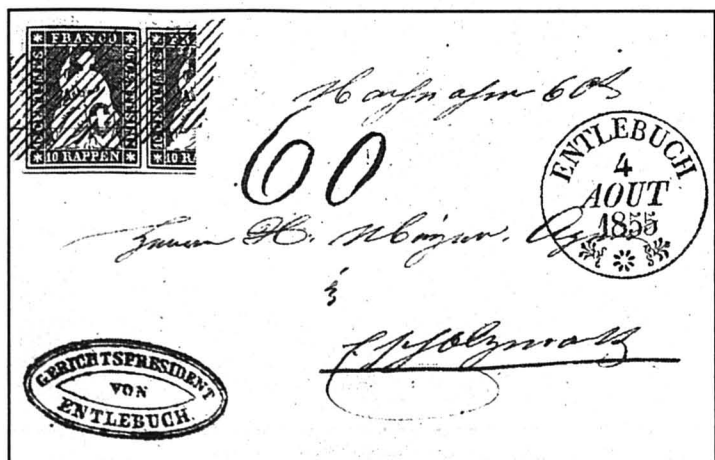 FRANCO FRA
10 RAPPEN 10 R
Nachnahm 60
60
ENTLEBUCH
4
AOUT
1855
Herrn
Escholzmatt
GERICHTSPRESIDENT
VON
ENTLEBUCH.